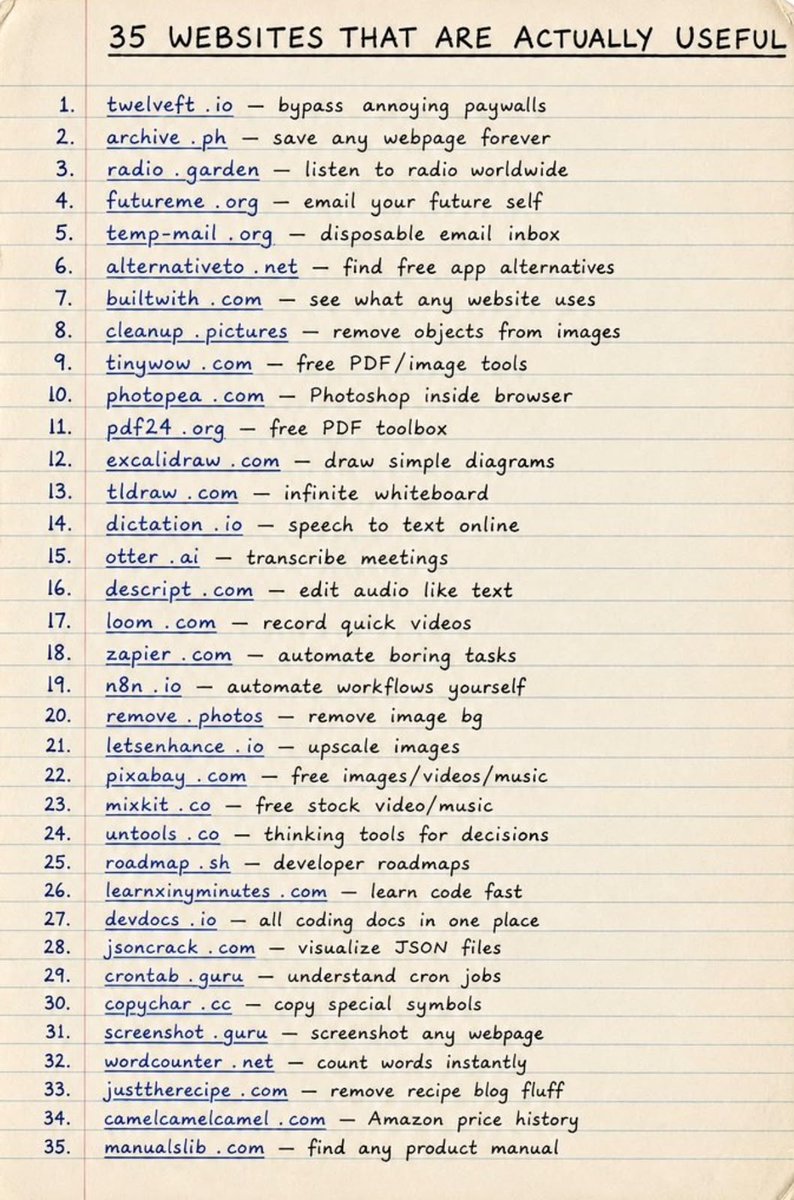 35 WEBSITES THAT ARE ACTUALLY USEFUL
1. twelveft .io — bypass annoying paywalls
2. archive .ph — save any webpage forever
3. radio .garden — listen to radio worldwide
4. futureme .org — email your future self
5. temp-mail .org — disposable email inbox
6. alternativeto .net — find free app alternatives
7. builtwith .com — see what any website uses
8. cleanup .pictures — remove objects from images
9. tinywow .com — free PDF/image tools
10. photopea .com — Photoshop inside browser
11. pdf24 .org — free PDF toolbox
12. excalidraw .com — draw simple diagrams
13. tldraw .com — infinite whiteboard
14. dictation .io — speech to text online
15. otter .ai — transcribe meetings
16. descript .com — edit audio like text
17. loom .com — record quick videos
18. zapier .com — automate boring tasks
19. n8n .io — automate workflows yourself
20. remove .photos — remove image bg
21. letsenhance .io — upscale images
22. pixabay .com — free images/videos/music
23. mixkit .co — free stock video/music
24. untools .co — thinking tools for decisions
25. roadmap .sh — developer roadmaps
26. learnxinyminutes .com — learn code fast
27. devdocs .io — all coding docs in one place
28. jsoncrack .com — visualize JSON files
29. crontab .guru — understand cron jobs
30. copychar .cc — copy special symbols
31. screenshot .guru — screenshot any webpage
32. wordcounter .net — count words instantly
33. justtherecipe .com — remove recipe blog fluff
34. camelcamelcamel .com — Amazon price history
35. manualslib .com — find any product manual